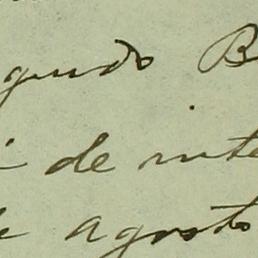 gundo B
i de inte
de agosto